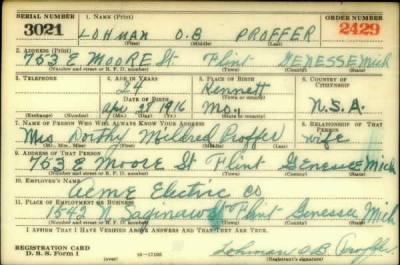 SERIAL NUMBER 1. NAME (Print) ORDER NUMBER
3021 LOHMAN O.B PROFFER 2429
(First) (Middle) (Last)
2. ADDRESS (Print)
753 E MOORE St Flint GENESSE Mich
(Number and street or R. F. D. number) (Town) (County) (State)
3. TELEPHONE 4. AGE IN YEARS 5. PLACE OF BIRTH 6. COUNTRY OF CITIZENSHIP
24 Kennett
DATE OF BIRTH (Town or county)
Apr 28 1916 Mo., U.S.A.
(Exchange) (Number) (Mo.) (Day) (Yr.) (State or country)
7. NAME OF PERSON WHO WILL ALWAYS KNOW YOUR ADDRESS 8. RELATIONSHIP OF THAT PERSON
Mrs Dorthy Mildred Proffer wife
(Mr., Mrs., Miss) (First) (Middle) (Last)
9. ADDRESS OF THAT PERSON
763 E Moore St Flint Genesse Mich
(Number and street or R. F. D. number) (Town) (County) (State)
10. EMPLOYER'S NAME
Acme Electric Co
11. PLACE OF EMPLOYMENT OR BUSINESS
Saginaw St Flint Genessee Mich
(Number and street or R. F. D. number) (Town) (County) (State)
I AFFIRM THAT I HAVE VERIFIED ABOVE ANSWERS AND THAT THEY ARE TRUE.
REGISTRATION CARD
D. S. S. Form 1 (over) 16-17105 Lohman O B Proffer
(Registrant's signature)